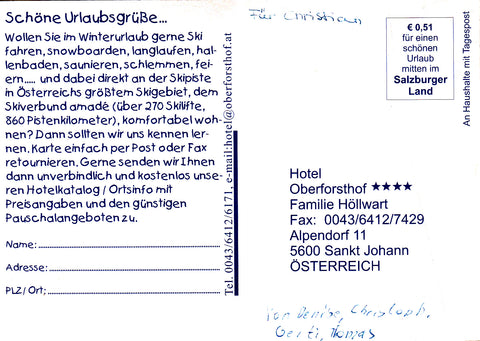 Schöne Urlaubsgrüße...
Wollen Sie im Winterurlaub gerne Ski
fahren, snowboarden, langlaufen, hal-
lenbaden, saunieren, schlemmen, fei-
ern..... und dabei direkt an der Skipiste
in Österreichs größtem Skigebiet, dem
Skiverbund amadé (über 270 Skilifte,
860 Pistenkilometer), komfortabel woh-
nen? Dann sollten wir uns kennen ler-
nen. Karte einfach per Post oder Fax
retournieren. Gerne senden wir Ihnen
dann unverbindlich und kostenlos unse-
ren Hotelkatalog / Ortsinfo mit
Preisangaben und den günstigen
Pauschalangeboten zu.
Name:
Adresse:
PLZ/Ort:
Tel. 0043/6412/6171, e-mail:hotel@oberforsthof.at
Für Christian
€ 0,51
für einen
schönen
Urlaub
mitten im
Salzburger
Land
An Haushalte mit Tagespost
Hotel
Oberforsthof ★★★★
Familie Höllwart
Fax: 0043/6412/7429
Alpendorf 11
5600 Sankt Johann
ÖSTERREICH
Von Denise, Christoph,
Gerti, Thomas